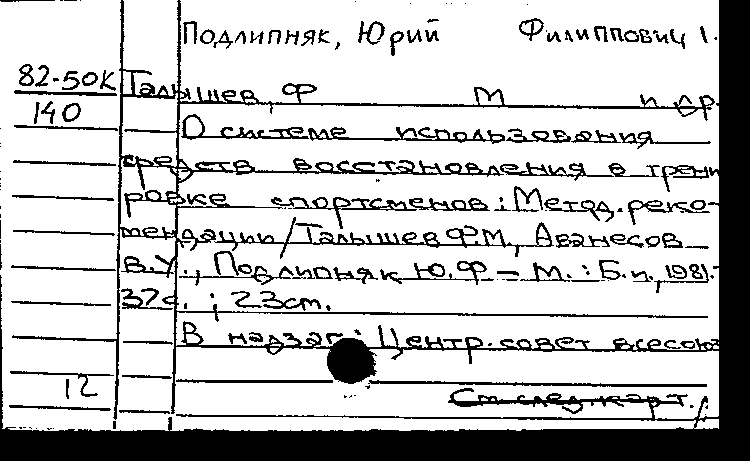 Подлипняк, Юрий Филиппович 1.
82-50К Талышев, Ф М и др.
140
О системе использования
средств восстановления в трени
ровке спортсменов: Метод. реко-
мендации/Талышев Ф.М., Аванесов
В.У., Подлипняк Ю.Ф – М. : Б.и., 1981.-
37с. ; 23см.
В надзаг: Центр. совет всесоюз
12
См след. карт.